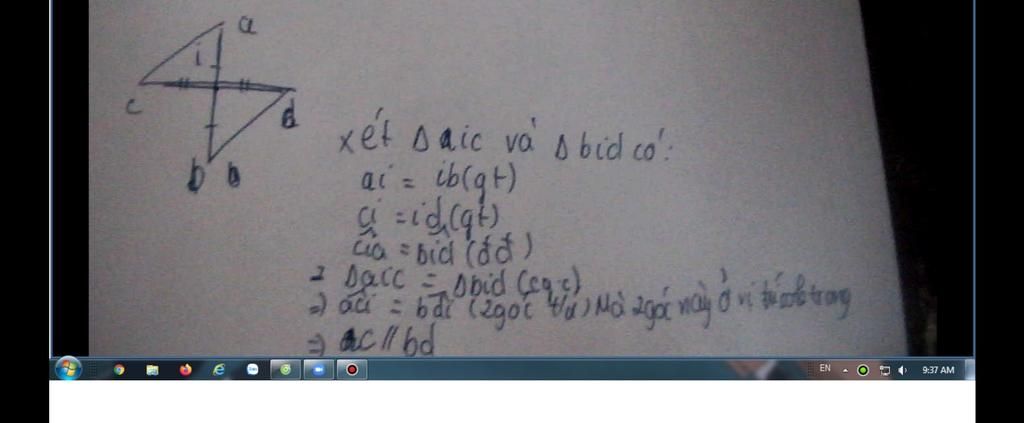 a
i
c
d
b b
xét Δaic và Δbid có:
ai = ib(gt)
ci = id(gt)
cia = bid (đđ)
Δaic = Δbid (cgc)
=> aci = bdi (2góc t/ư) Mà 2góc này ở vị trí trong
=> ac // bd
EN
9:37 AM